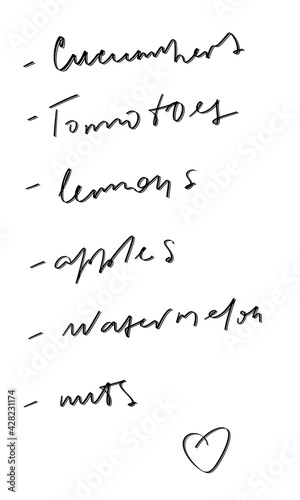 - Cucumbers
- Tomatoes
- lemons
- apples
- watermelon
- nuts
Adobe Stock | #428231174